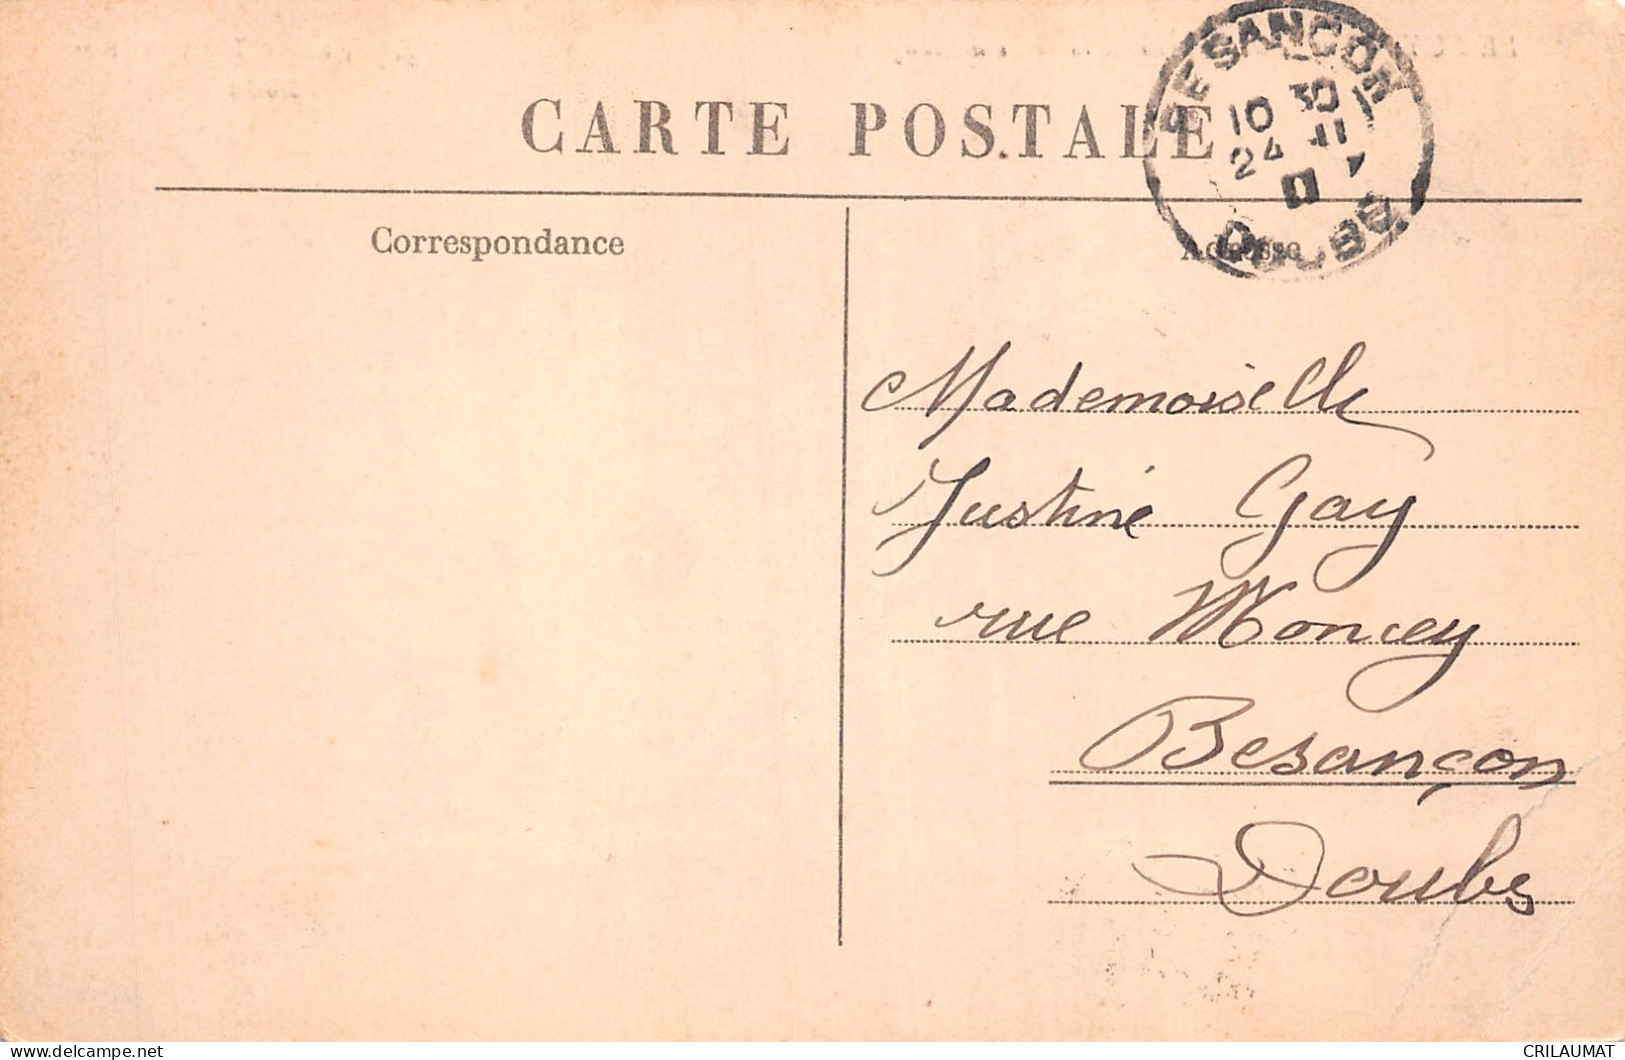 CARTE POSTALE
BESANÇON
10 30
24 - 11
DOUBS
Correspondance
Adresse
Mademoiselle
Justine Gay
rue Moncey
Besançon
Doubs
CRILAUMAT